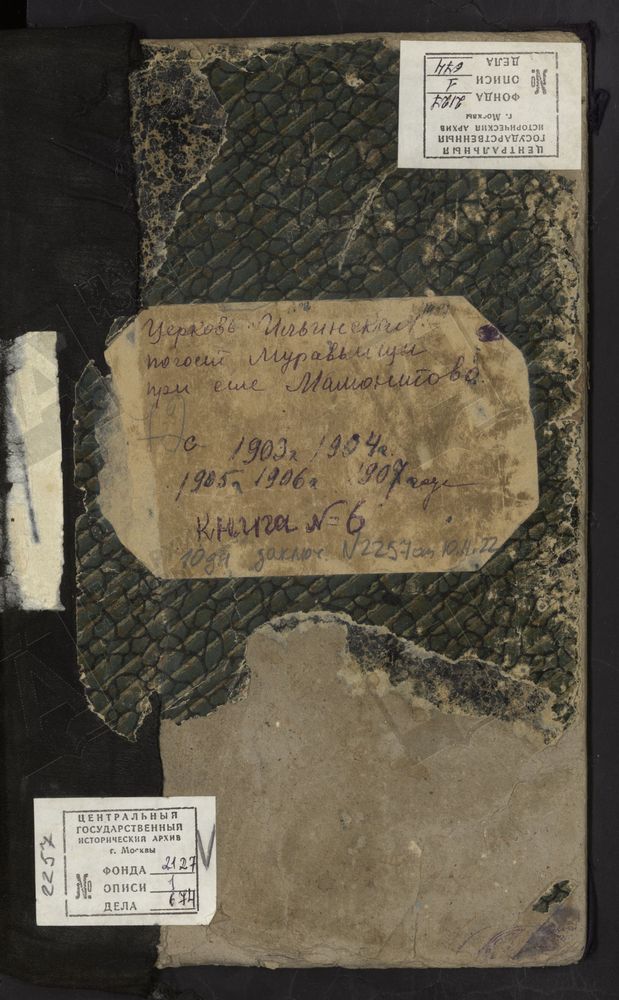 ЦЕНТРАЛЬНЫЙ
ГОСУДАРСТВЕННЫЙ
ИСТОРИЧЕСКИЙ АРХИВ
г. Москвы
№
ФОНДА 2127
ОПИСИ 1
ДЕЛА 674
Церковь Ильинская
погост Муравьищы
при селе Мамонтово.
с 1903г 1904г.
1905г 1906г 1907 года
Книга №6
N2257
2257
ЦЕНТРАЛЬНЫЙ
ГОСУДАРСТВЕННЫЙ
ИСТОРИЧЕСКИЙ АРХИВ
г. Москвы
№
ФОНДА 2127
ОПИСИ 1
ДЕЛА 674
V